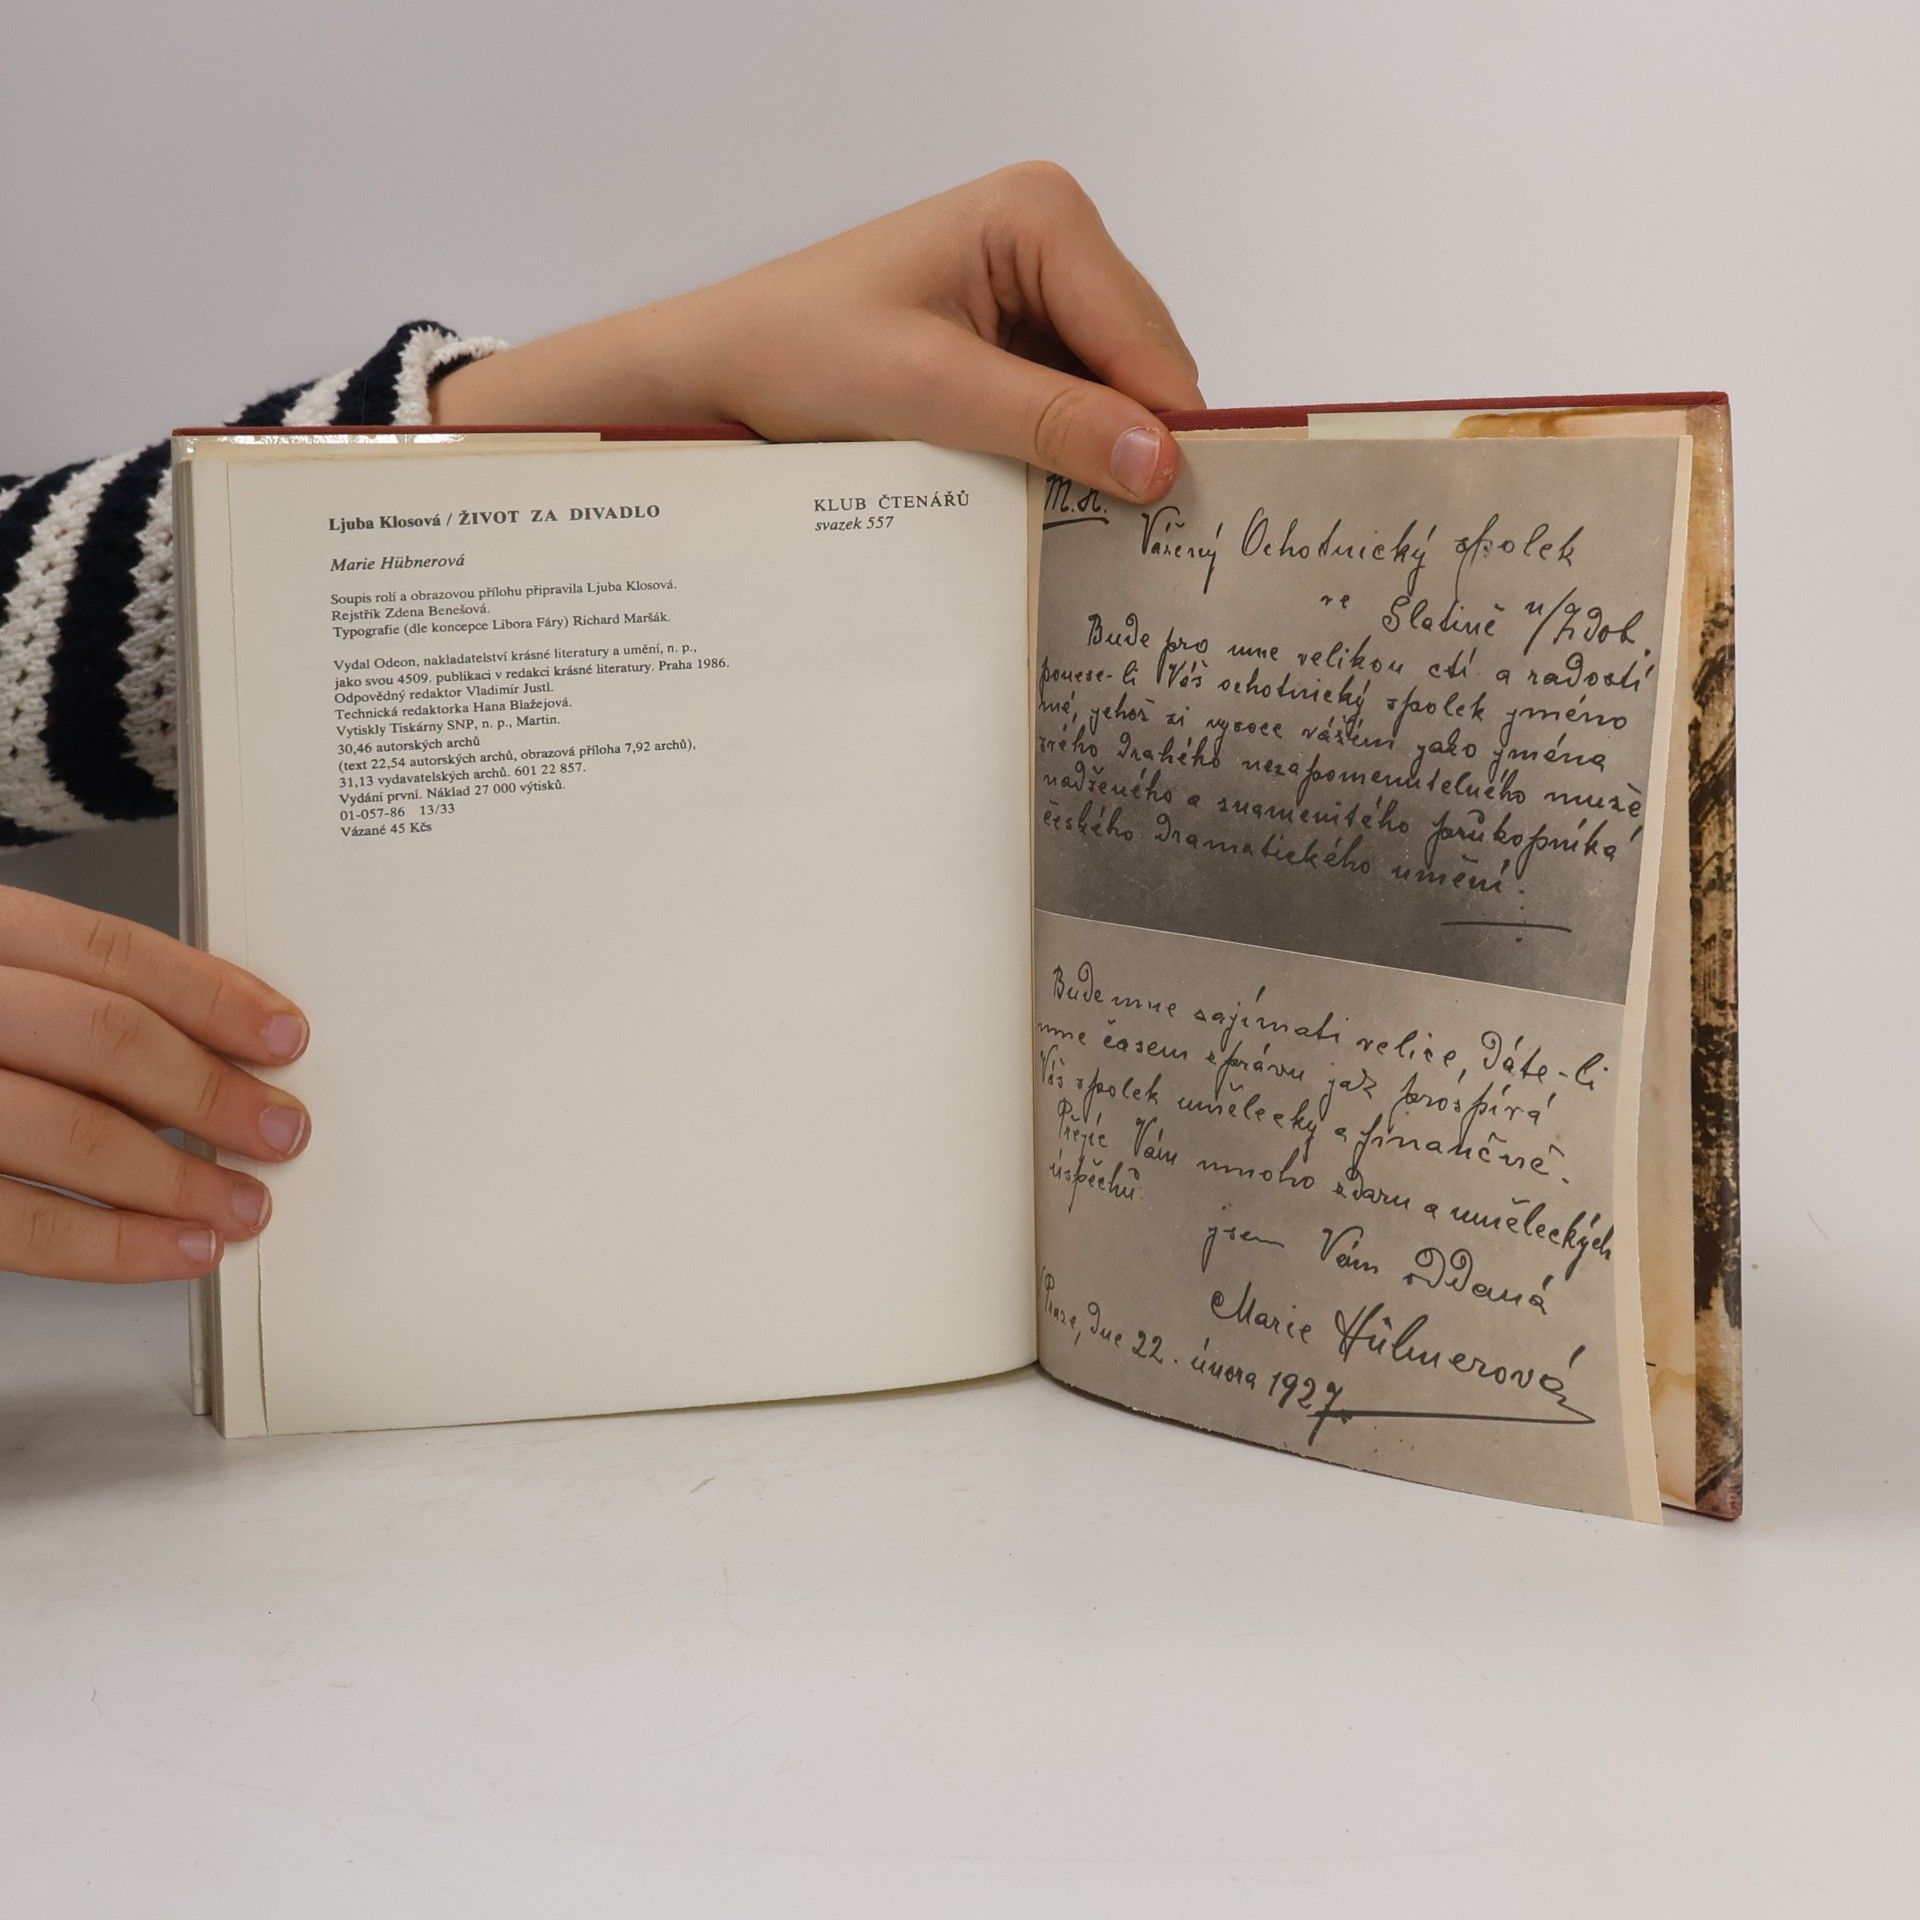 Ljuba Klosová / ŽIVOT ZA DIVADLO
Marie Hübnerová
Soupis rolí a obrazovou přílohu připravila Ljuba Klosová.
Rejstřík Zdena Benešová.
Typografie (dle koncepce Libora Fáry) Richard Maršák.
Vydal Odeon, nakladatelství krásné literatury a umění, n. p.,
jako svou 4509. publikaci v redakci krásné literatury. Praha 1986.
Odpovědný redaktor Vladimír Justl.
Technická redaktorka Hana Blažejová.
Vytiskly Tiskárny SNP, n. p., Martin.
30,46 autorských archů
(text 22,54 autorských archů, obrazová příloha 7,92 archů),
31,13 vydavatelských archů. 601 22 857.
Vydání první. Náklad 27 000 výtisků.
01-057-86 13/33
Vázané 45 Kčs
KLUB ČTENÁŘŮ
svazek 557
M. H.
Vážený Ochotnický spolek
ve Slatině n/Zdob.
Bude pro mne velikou ctí a radostí
ponese-li Váš ochotnický spolek jméno
mé, jehož si vysoce vážím jako jména
svého drahého nezapomenutelného muže
nadšeného a znamenitého průkopníka
českého dramatického umění.
Bude mne zajímati velice, dáte-li
mne časem zprávu jak prospívá
Váš spolek umělecky a finančně.
Přejíc Vám mnoho zdaru a uměleckých
úspěchů.
jsem Vám oddaná
Marie Hübnerová
Praze, dne 22. února 1927.